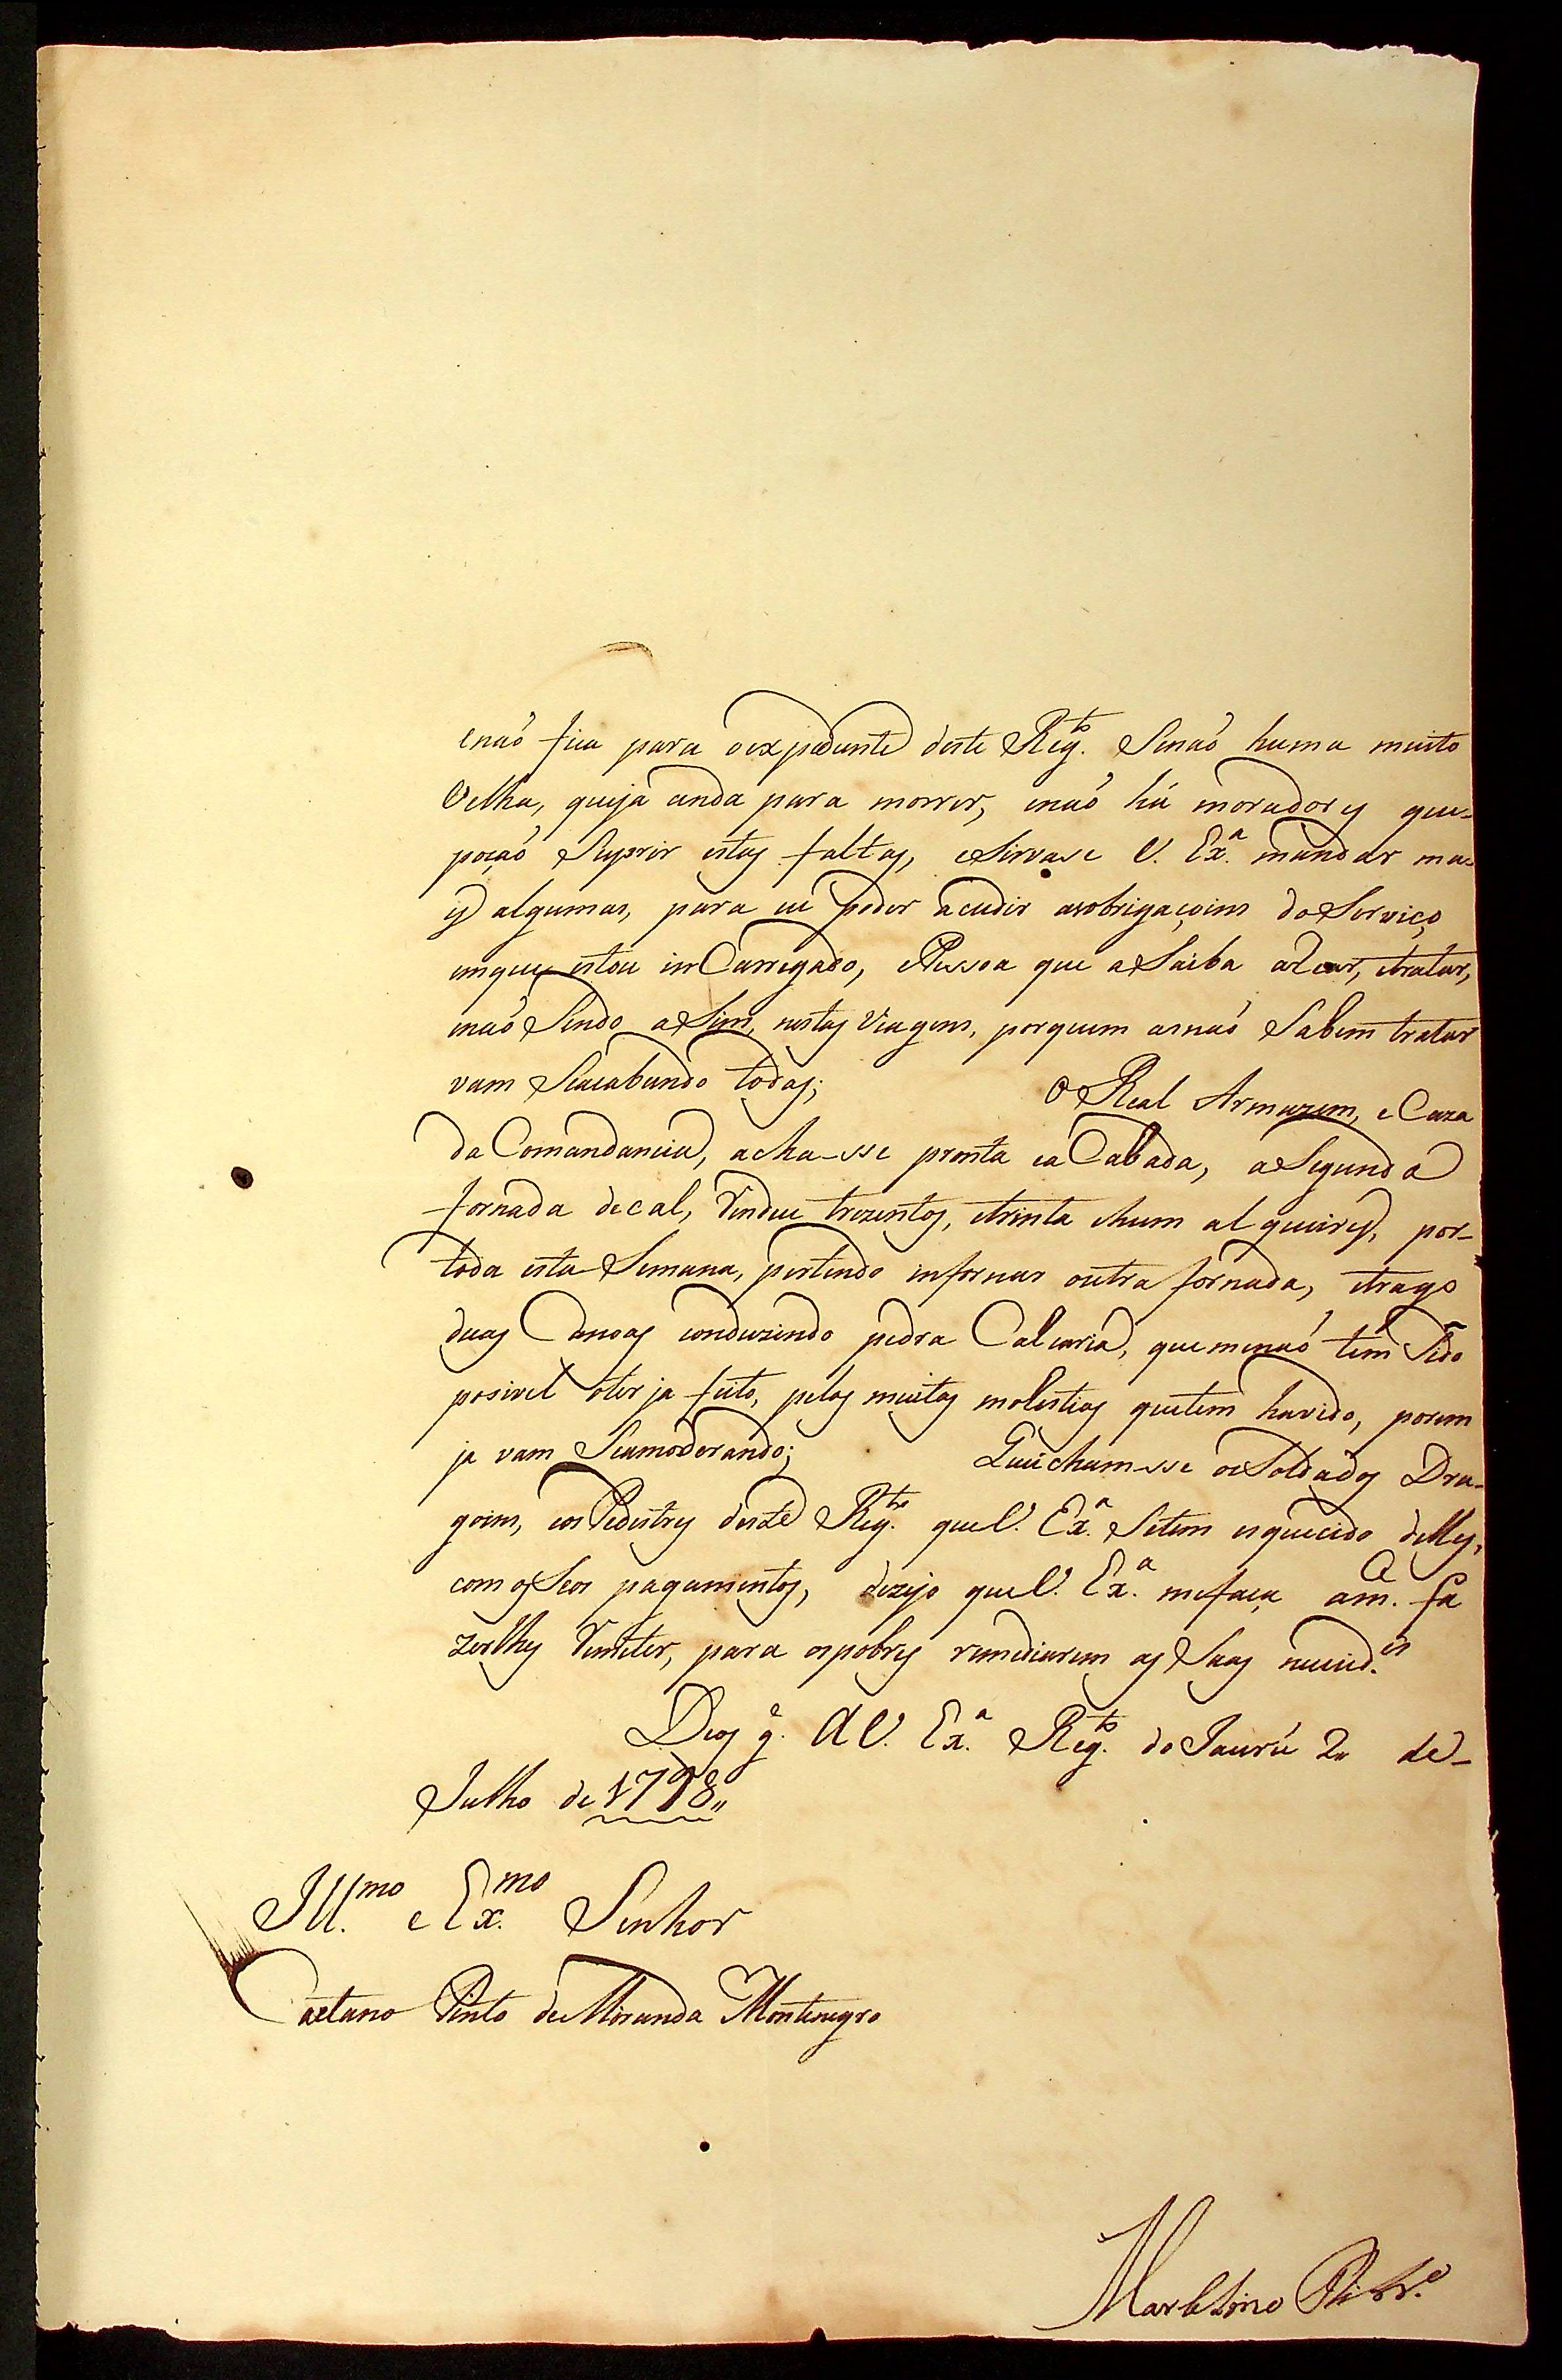 enaó fica para oexpediente deste Reg.to Senaó huma muito
Velha, queja anda para morrer, enaó há moradores que-
poçaó Suprir estas faltas, eSirvase V. Ex.a mandar ma-
is algumas, para eu poder acudir asobrigaçoins doServiço
emque estou inCarregado, ePessoa que aSaiba atear, etratar,
enaó Sendo aSim, nestas Viagens, porquem asnaó Sabem tratar
vam Seacabando todas; O Real Armazem, eCaza
da Comandancia, acha-sse pronta eaCabada, aSegunda
fornada decal, Rendeu trezentos, etrinta ehum alqueires, por-
toda esta Semana, pertendo infornar outra fornada, etrago
duas Canoas conduzindo pedra Calcaria, quemenaó tem Sido
posivel oter ja feito, pelas muitas molestias quetem havido, porem
ja vam Seamoderando; Queicham-sse osSoldados Dra-
goens, eosPedestres deste Reg.to queV. Ex.a Setem esquecido delles,
com osSeos pagamentos, dezejo queV. Ex.a mefaça am.ce fa
zerlhes Remeter, para ospobres remediarem as Suas necesid.es
Deos g.e AV. Ex.a Reg.to do Jaurú 2 de-
Julho de 1798,,
Ill.mo e Ex.mo Senhor
Caetano Pinto deMiranda Montenegro